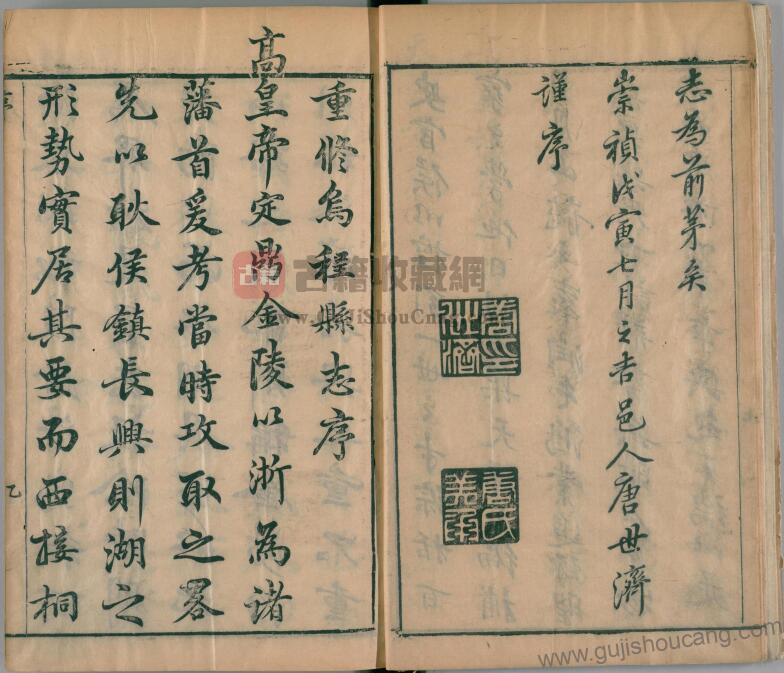 志為前茅矣
崇禎戊寅七月之吉邑人唐世濟
謹序
唐印世濟
唐氏美承
重修烏程縣志序
高皇帝定鼎金陵以浙為諸
藩首爰考當時攻取之畧
先以耿侯鎮長興則湖之
形勢實居其要而西接桐
古籍收藏網
www.GuJiShouCang.com
www.gujishoucang.com